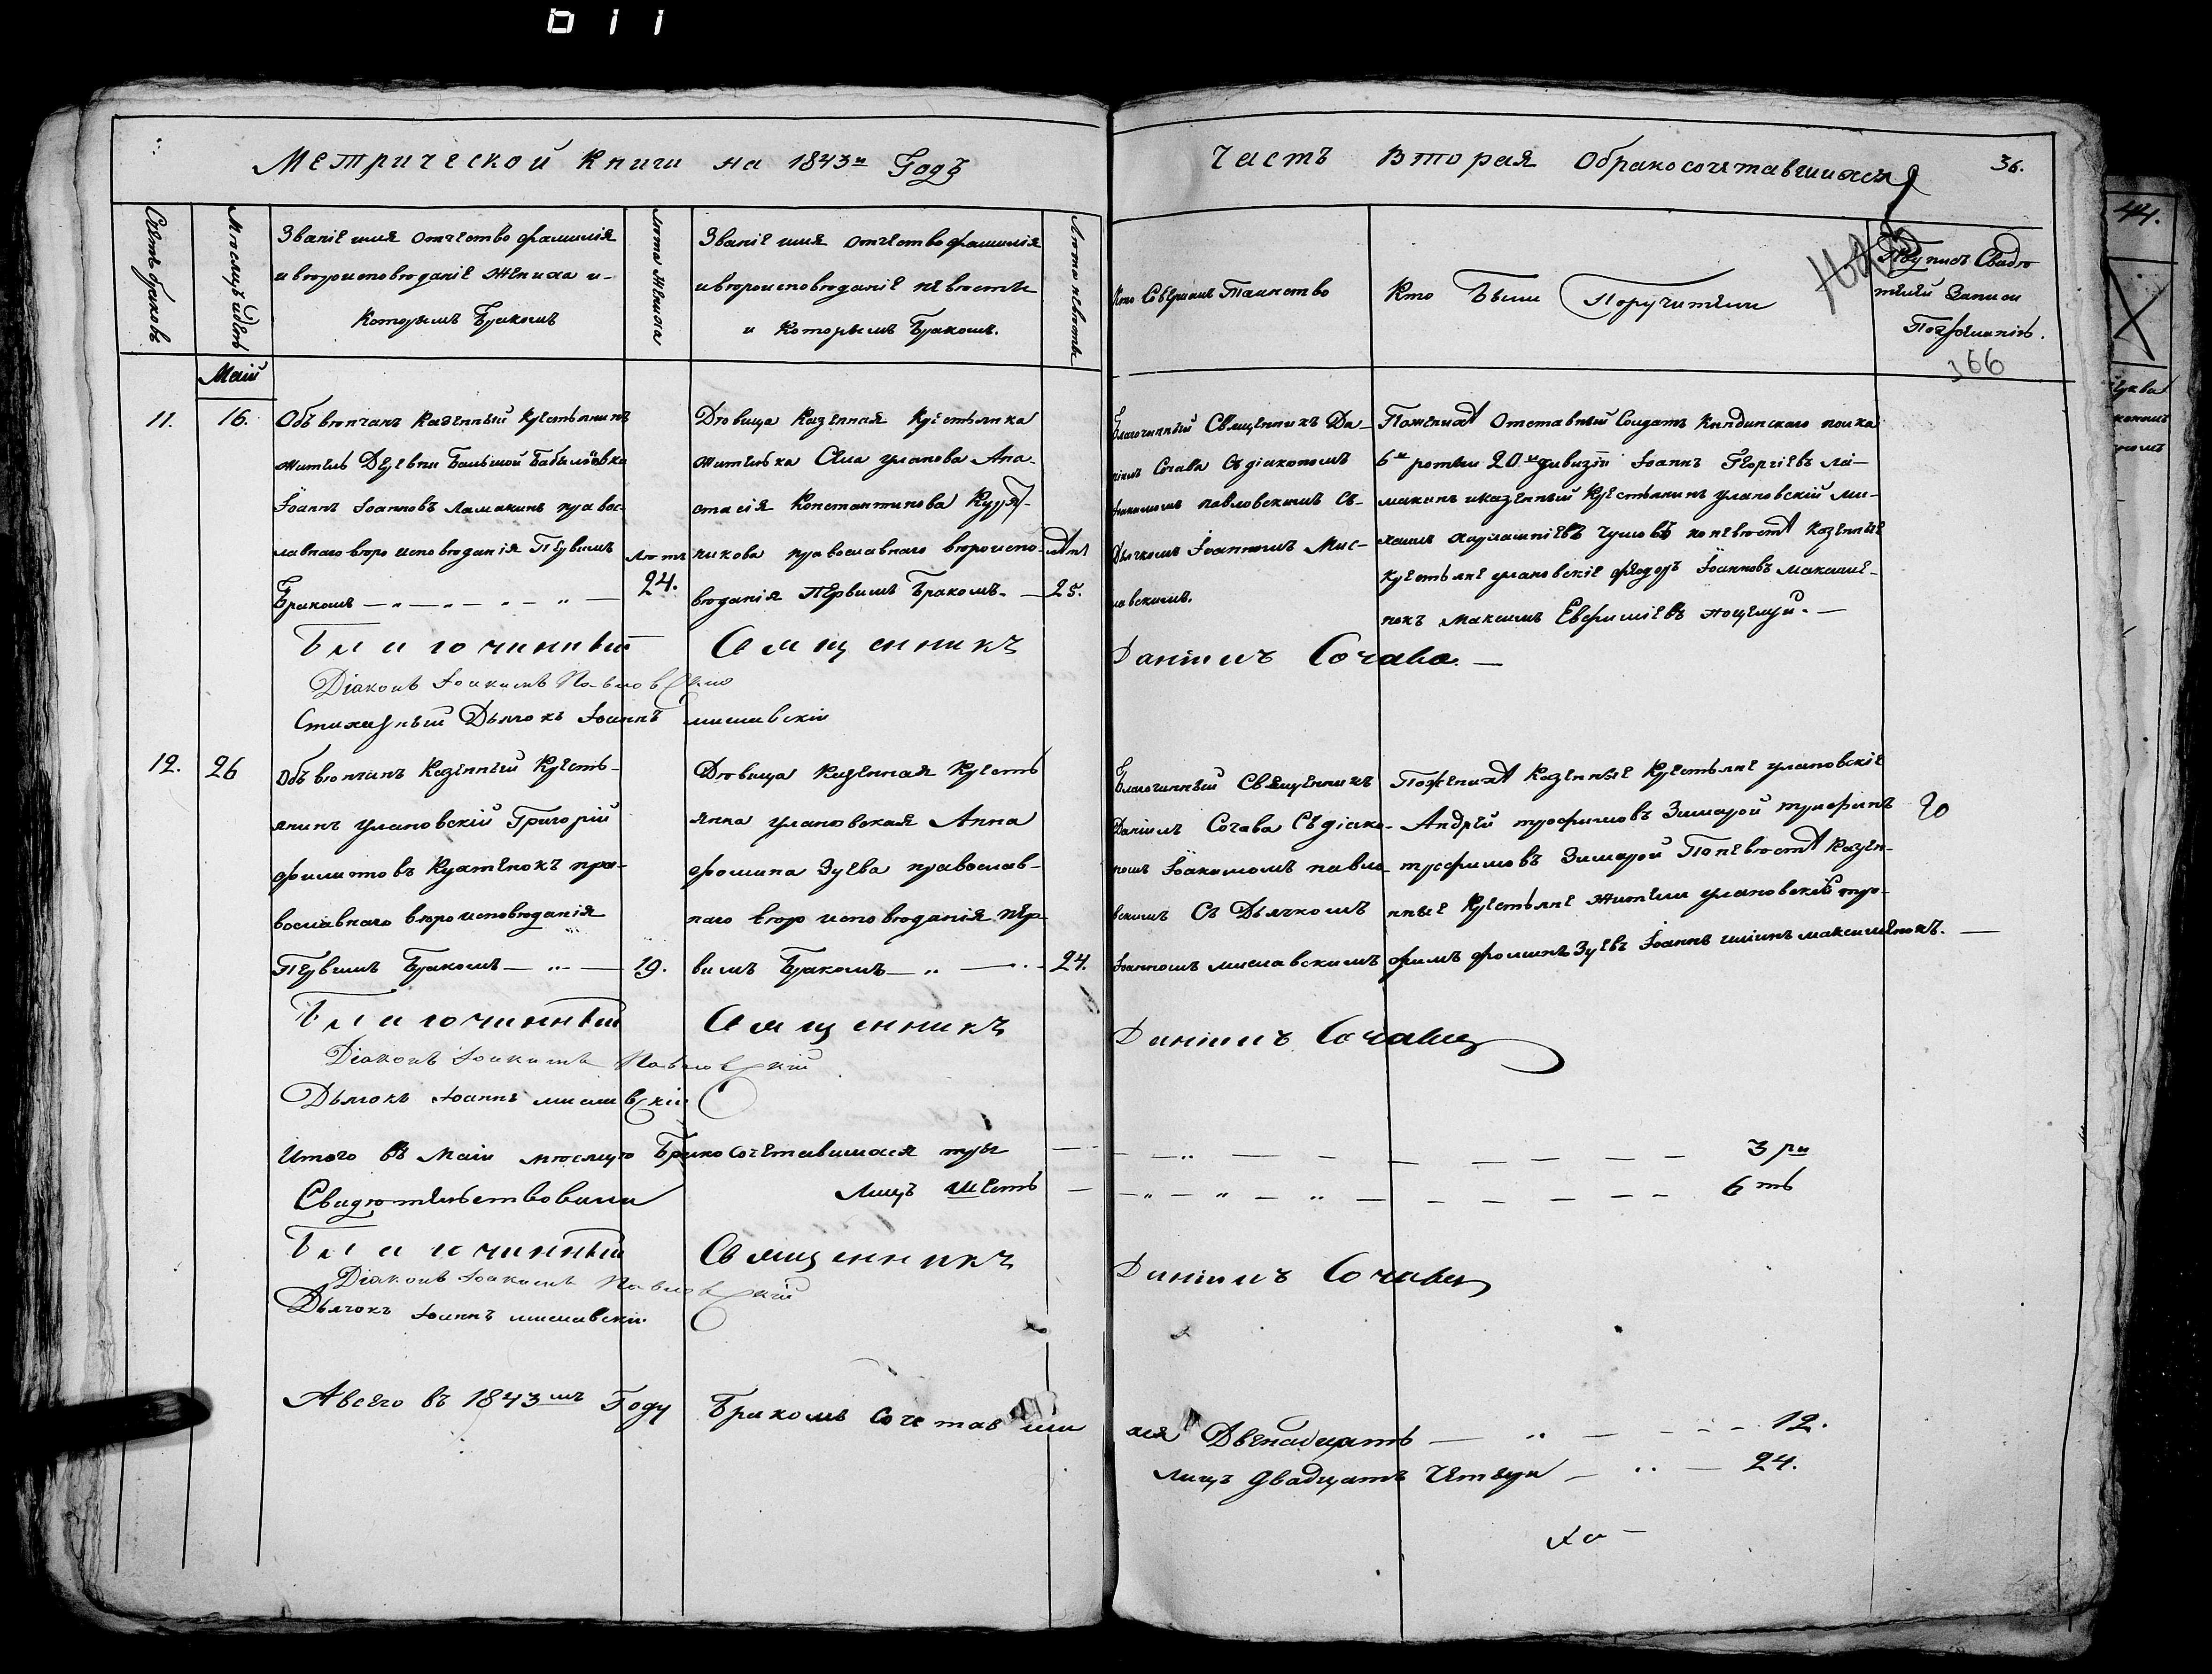 Метрической книги на 1843й Годъ
Часть вторая Обракосочетавшихся
36.
44.
Счетъ браковъ
Мѣсяцъ и день
Званіе имя отчество фамилія
и вѣроисповѣданіе жениха и
которымъ бракомъ
Лѣта жениха
Званіе имя отчество фамилія
и вѣроисповѣданіе невѣсты
и которымъ бракомъ.
Лѣта невѣсты
Кто Совершалъ Таинство
Кто Были Поручители
Подпись Свидѣ
телей Записи
366
Маій
11.
16.
Объвѣнчанъ Казенный Крестьянинъ
житель Деревни Большой Бабыловка
Іоаннъ Іоанновъ Ламакинъ правос-
лавнаго вѣроисповѣданія Первымъ
Бракомъ
Лѣтъ
24.
Дѣвица Казенная Крестьянка
жителька Села Уланова Ана-
стасія Константинова
никова православнаго вѣроиспо-
вѣданія Первымъ Бракомъ.
25.
Благочинный Священникъ Да-
ніилъ Сочава Съ діакономъ
Іоакимомъ Павловскимъ Съ-
Дьячкомъ Іоанномъ Мис-
лавскимъ.
По женихѣ Отставный Солдатъ полка
6й роты 20й дивизіи Іоаннъ Георгіевъ Ла-
макинъ и казенный Крестьянинъ улановскій Ми-
хаилъ Харлампіевъ по невѣстѣ Казенные
Крестьяне улановскіе Феодоръ Іоанновъ Максиме-
нокъ Максимъ Евфиміевъ Поцелуй.
Благочинный Священникъ Даніилъ Сочава.
Діаконъ Іоакимъ Павловскій
Стихарный Дьячокъ Іоаннъ миславскій
12.
26
Объвѣнчанъ Казенный Кресть-
янинъ улановскій Григорій
филиповъ пра-
вославнаго вѣроисповѣданія
Первымъ Бракомъ
19.
Дѣвица Казенная Кресть
янка улановская Анна
фомина Зуева православ-
наго вѣроисповѣданія пер-
вымъ Бракомъ
24.
Благочинный Священникъ
Даніилъ Сочава Съ діако-
номъ Іоакимомъ павло-
вскимъ Съ Дьячкомъ
Іоанномъ миславскимъ
По женихѣ Казенные Крестьяне улановскіе
Андрей трофимовъ Зимарой
трофимовъ Зимарой По невѣстѣ Казен-
нные Крестьяне жители улановскіе тро-
фимъ фоминъ Зуевъ Іоаннъ максименокъ.
20
Благочинный Священникъ Даніилъ Сочава
Діаконъ Іоакимъ Павловскій
Дьячокъ Іоаннъ миславскій
Итого въ Маіи мѣсяцѣ Бракосочетавшихся три 3ри
Свидѣтельствовали Лицъ шесть 6ть
Благочинный Священникъ Даніилъ Сочава
Діаконъ Іоакимъ Павловскій
Дьячокъ Іоаннъ миславскій
А всего въ 1843мъ Году Бракомъ Сочетавши
хся Двенадцать 12.
Лицъ двадцать Четыри 24.